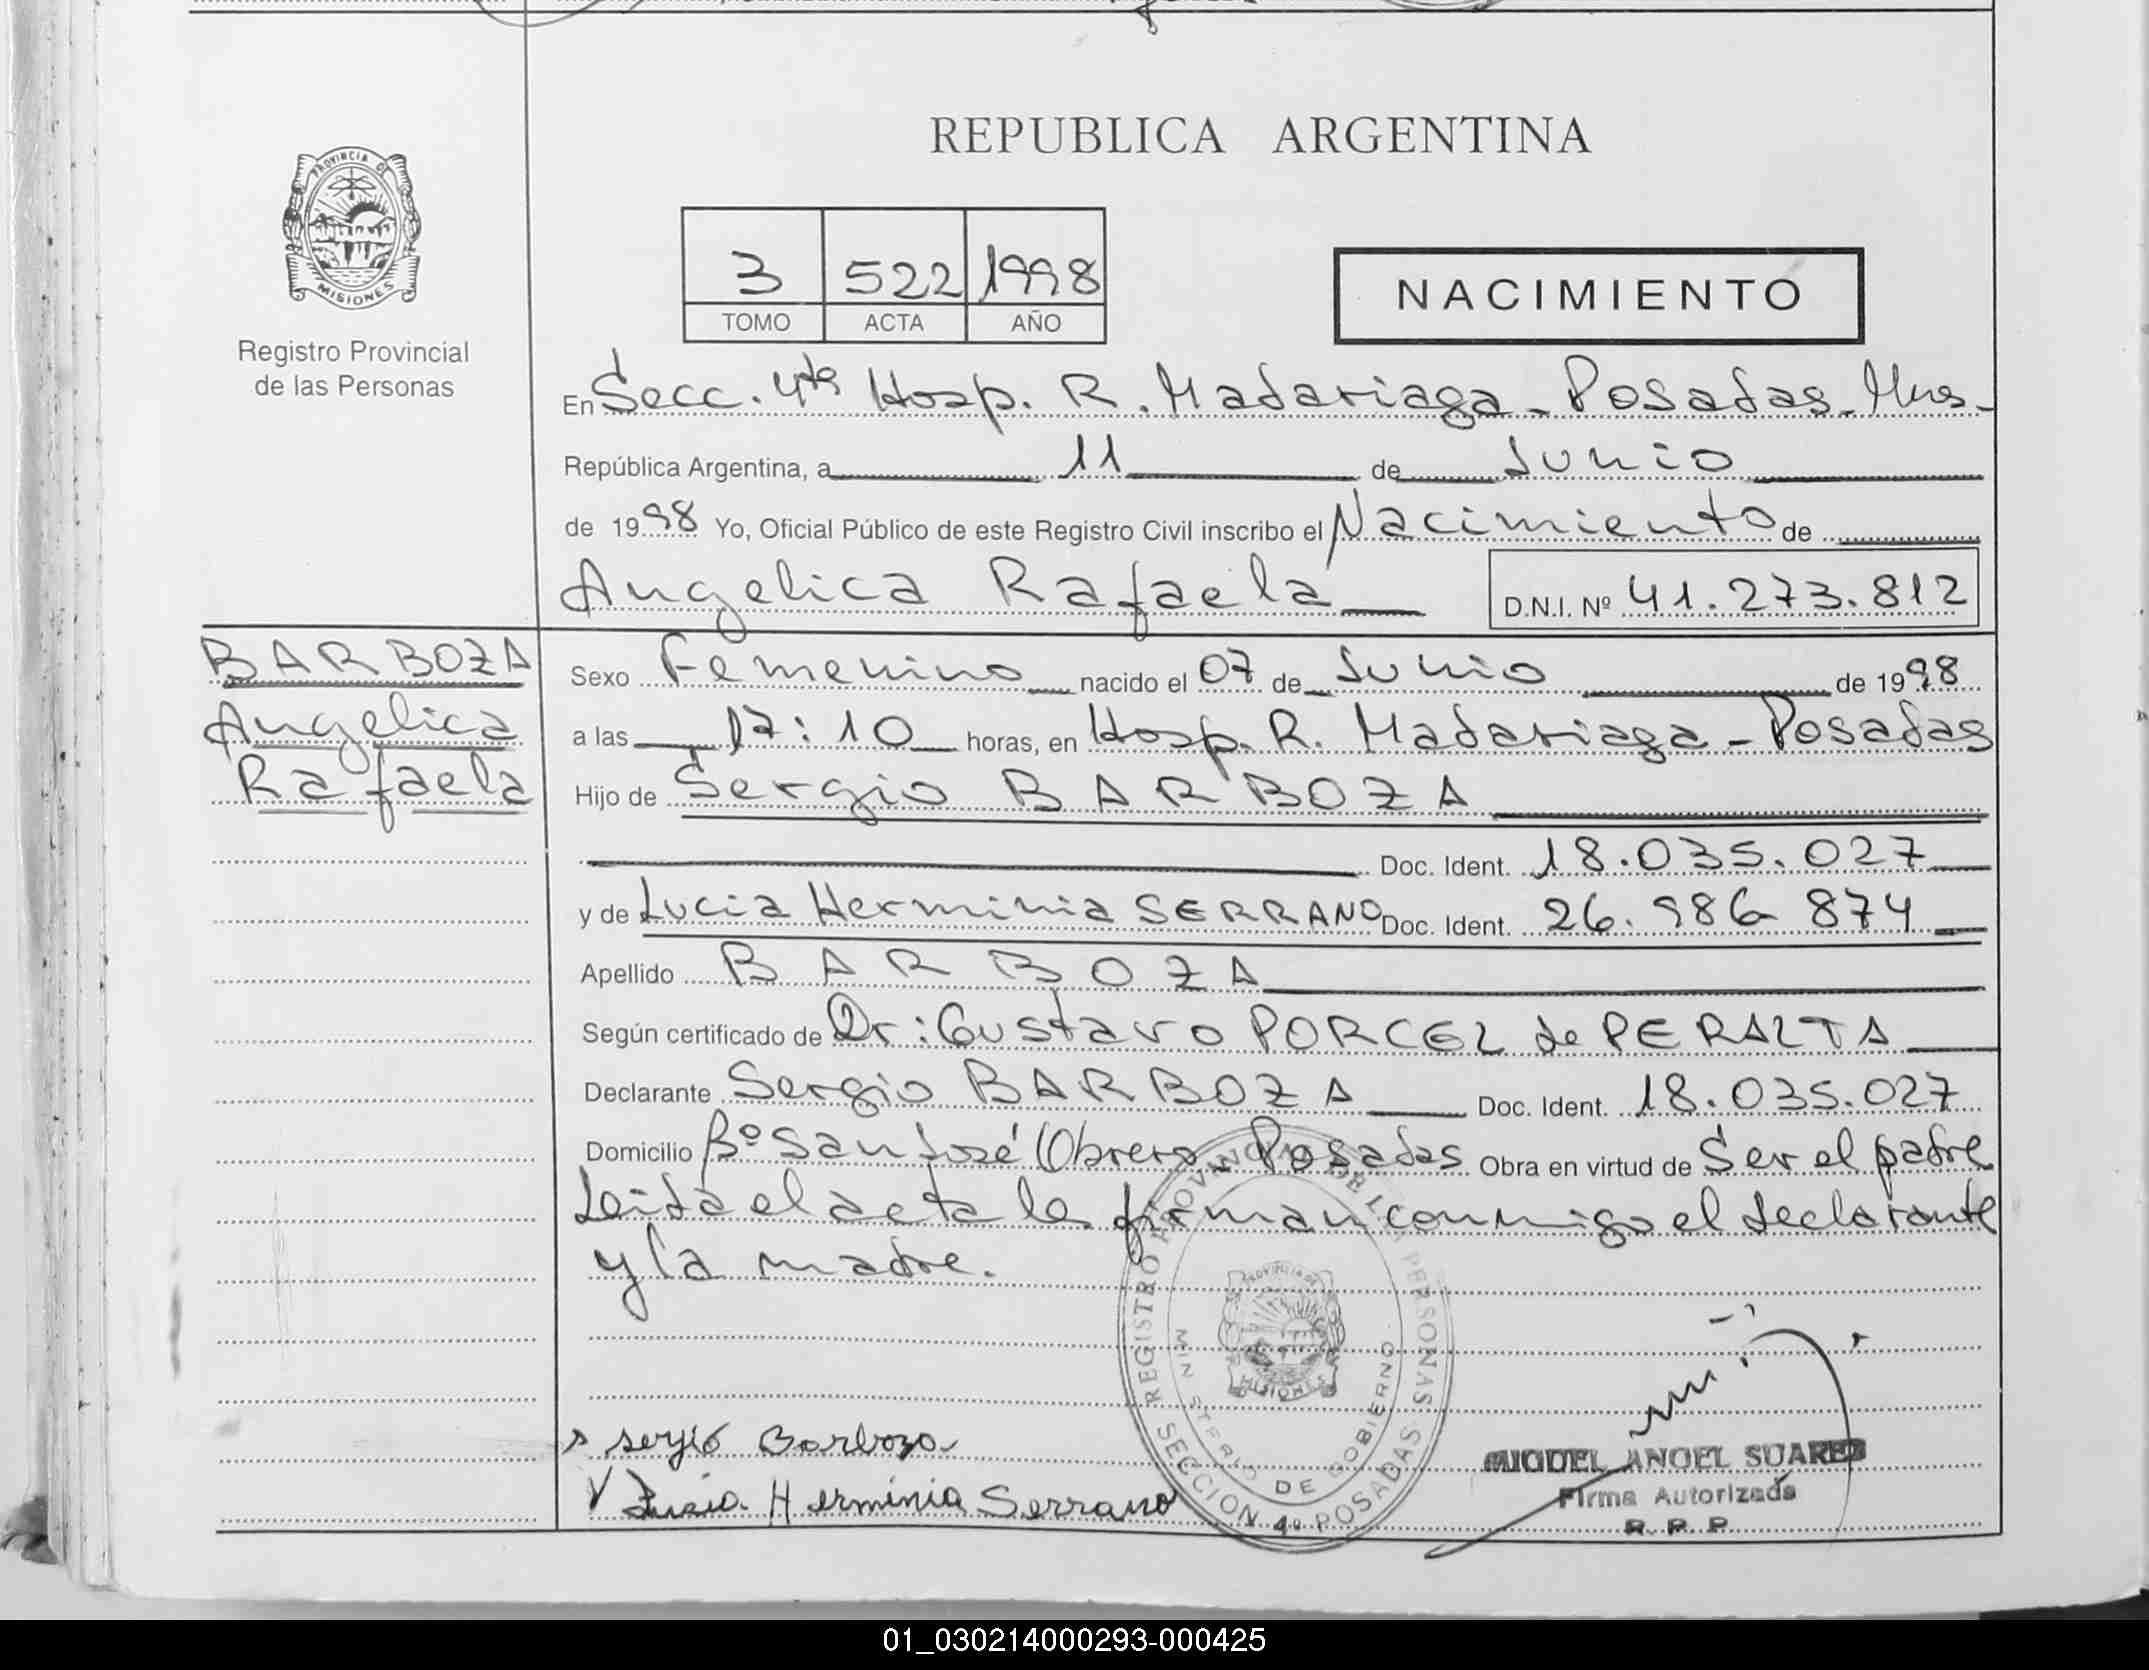 REPUBLICA ARGENTINA
PROVINCIA DE
MISIONES
Registro Provincial
de las Personas
3 522 1998
TOMO ACTA AÑO
NACIMIENTO
En Secc. 4ta Hosp. R. Madariaga - Posadas - Mnes -
República Argentina, a 11 de Junio
de 1998 Yo, Oficial Público de este Registro Civil inscribo el Nacimiento de
Angelica Rafaela D.N.I. Nº 41.273.812
BARBOZA
Angelica
Rafaela
Sexo Femenino nacido el 07 de Junio de 1998
a las 17:10 horas, en Hosp. R. Madariaga - Posadas
Hijo de Sergio BARBOZA
Doc. Ident. 18.035.027
y de Lucia Herminia SERRANO Doc. Ident. 26.986 874
Apellido BARBOZA
Según certificado de Dr: Gustavo PORCEL de PERALTA
Declarante Sergio BARBOZA Doc. Ident. 18.035.027
Domicilio Bº San José Obrero. Posadas Obra en virtud de Ser el padre
Leida el acta la firman conmigo el declarante
y la madre.
REGISTRO PROVINCIAL DE LAS PERSONAS
MINISTERIO DE GOBIERNO
MISIONES
SECCION 4º POSADAS
Sergio Barboza
Lucia Herminia Serrano
MIGUEL ANGEL SUAREZ
Firma Autorizada
R. P. P.
01_030214000293-000425